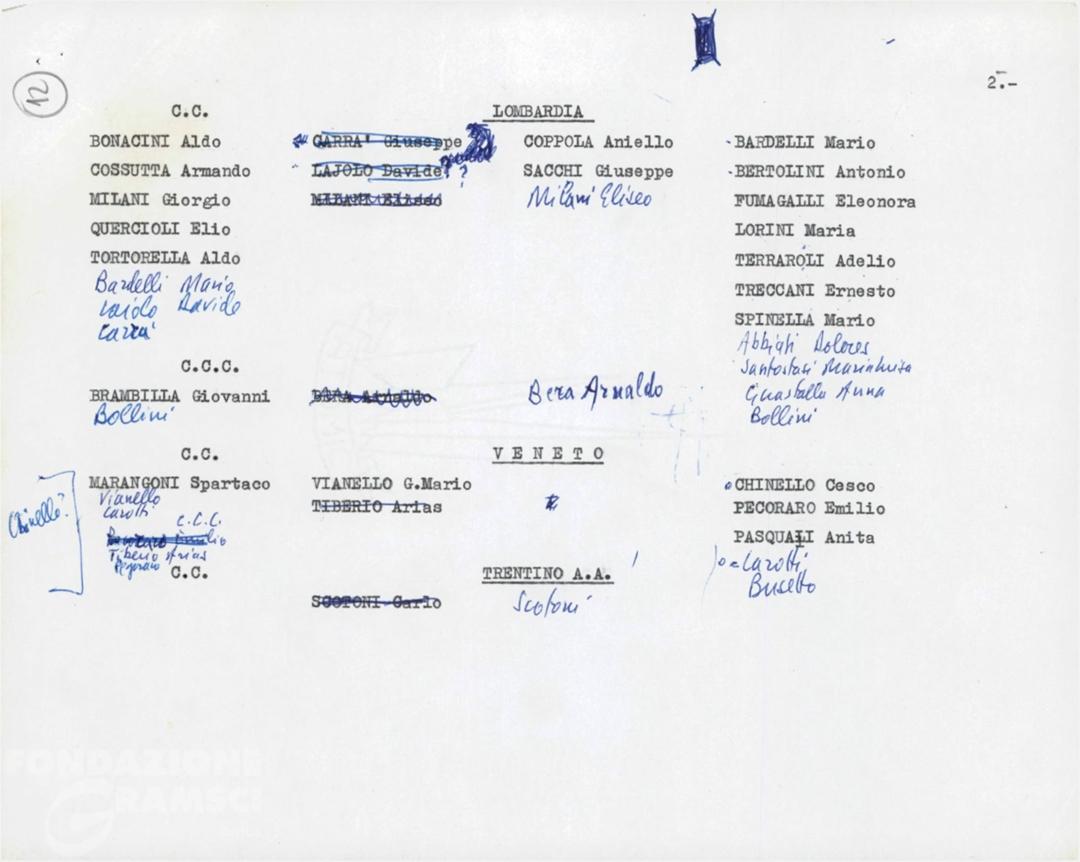 12
2.-
C.C.
LOMBARDIA
BONACINI Aldo GARRA' Giuseppe COPPOLA Aniello - BARDELLI Mario
COSSUTTA Armando LAJOLO Davide ? SACCHI Giuseppe - BERTOLINI Antonio
MILANI Giorgio MILANI Eliseo Milani Eliseo FUMAGALLI Eleonora
QUERCIOLI Elio LORINI Maria
TORTORELLA Aldo TERRAROLI Adelio
Bardelli Mario TRECCANI Ernesto
Davide SPINELLA Mario
Abbiati Dolores
C.C.C.
BRAMBILLA Giovanni BERA Arnaldo Bera Arnaldo Guastalla Anna
Bollini Bollini
C.C.
VENETO
MARANGONI Spartaco VIANELLO G.Mario CHINELLO Cesco
Chinello? Vianello TIBERIO Arias PECORARO Emilio
Carotti
C.C.C. PASQUALI Anita
Tiberio Arias Carotti
Pecoraro Busetto
C.C.
TRENTINO A.A.
SCOTONI Carlo Scotoni
FONDAZIONE
GRAMSCI